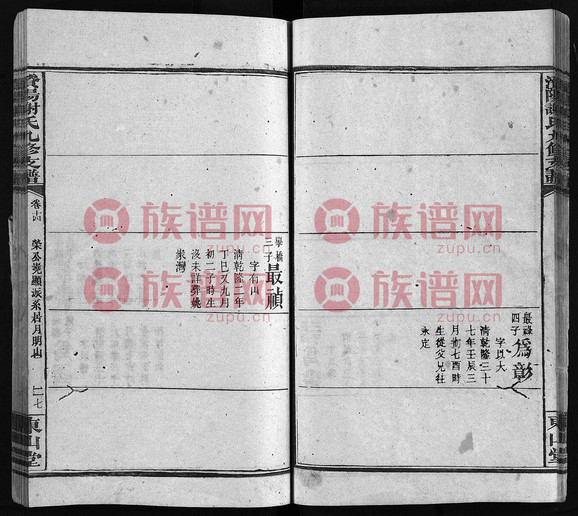 資陽謝氏九修支譜
最祿
四子
為彰
字以大
清乾隆三十
七年壬辰三
月初七酉時
生從父兄往
永定
東山堂
舉楨
三子
最禎
字有山
清乾隆二年
丁巳又九月
初二子時生
沒未詳葬姚
泉灣
資陽謝氏九修支譜
卷十四
二七
東山堂
族谱网
zupu.cn
族谱网
zupu.cn
族谱网
zupu.cn
族谱网
zupu.cn